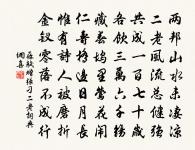 兩邦山水未淒涼
二老風流總健強
共成一百七十歲
各飲三萬六千觴
藏春塢裏鶯花鬧
仁壽橋邊日月長
惟有詩人被磨折
金釵零落不成行
蘇軾贈張刁二老詞典
網喜